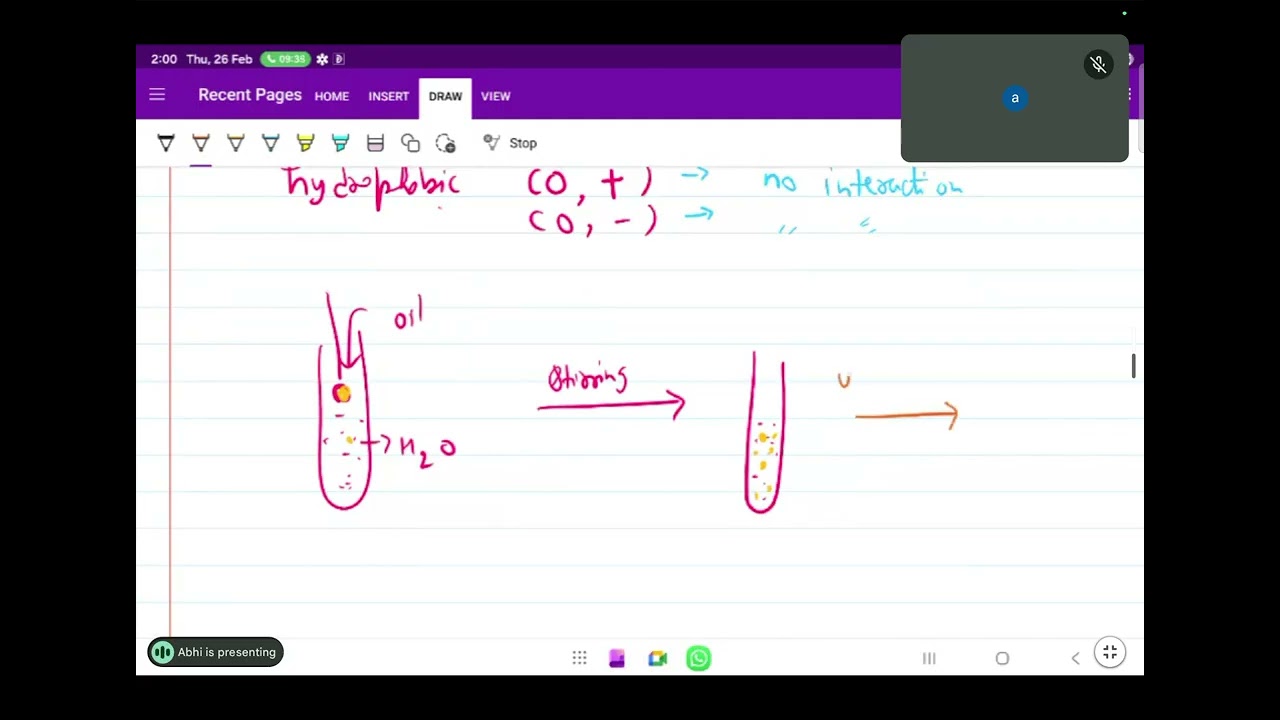 2:00 Thu, 26 Feb 09:38
Recent Pages HOME INSERT DRAW VIEW
a
Stop
hydrophobic (0, +) → no interaction
(0, -) → " "
oil
Stirring
U
→ H2O
Abhi is presenting